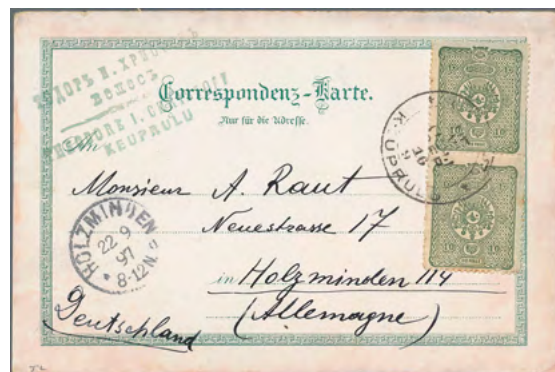 ТОДОРЪ И.
THEODORE I.
KEUPRULU
Correspondenz-Karte.
Nur für die Adresse.
An
KEUPRULU
10 10
10 10
Monsieur A. Raut
Neuestrasse 17
in Holzminden 114
(Allemagne)
Deutschland
HOLZMINDEN
22 9
97
8-12N.